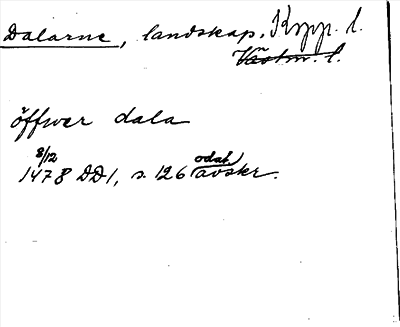 Dalarne, landskap. Kopp. l.
Västm. l.
öffwer dala
8/12
1478 DD1, s. 126 odat. avskr.